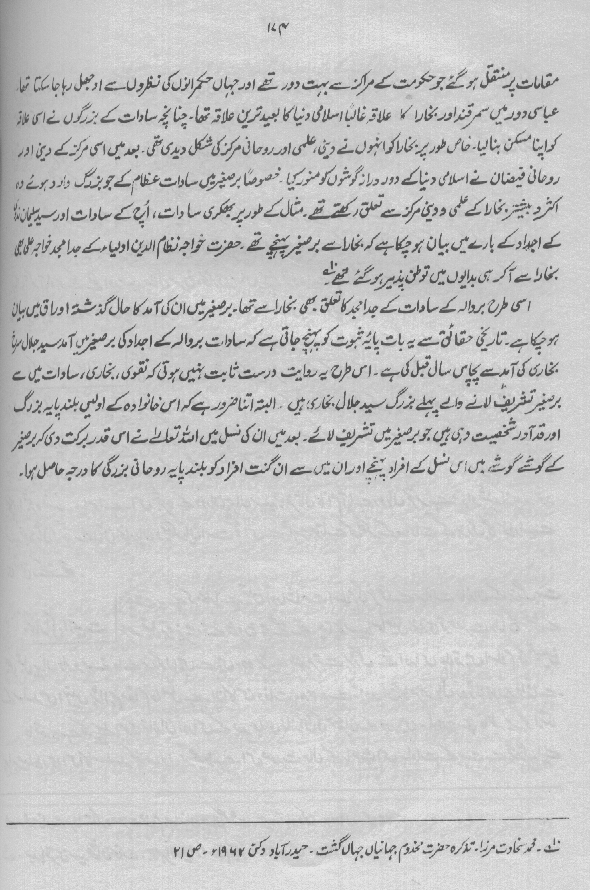 ۱۷۴
مقامات پر منتقل ہو گئے جو حکومت کے مراکز سے بہت دور تھے اور جہاں حکمرانوں کی نظروں سے اوجھل رہا جا سکتا تھا۔
عباسی دور میں سمرقند اور بخارا کا علاقہ غالباً اسلامی دنیا کا بعید ترین علاقہ تھا۔ چنانچہ سادات کے بزرگوں نے اسی علاقہ
کو اپنا مسکن بنا لیا۔ خاص طور پر بخارا کو انہوں نے دینی، علمی اور روحانی مرکز کی شکل دیدی تھی۔ بعد میں اسی مرکز کے دینی اور
روحانی فیضان نے اسلامی دنیا کے دور دراز گوشوں کو منور کیا۔ خصوصاً برصغیر میں سادات عظام کے جو بزرگ وارد ہوئے وہ
اکثر و بیشتر بخارا کے علمی و دینی مرکز سے تعلق رکھتے تھے۔ مثال کے طور پر بھکری سادات، اُچ کے سادات اور سید سلیمان
کے اجداد کے بارے میں بیان ہو چکا ہے کہ بخارا سے برصغیر پہنچے تھے۔ حضرت خواجہ نظام الدین اولیاء کے جد امجد خواجہ علی بھی
بخارا سے آ کر ہی بدایوں میں توطن پذیر ہو گئے تھے۔
اسی طرح بروالہ کے سادات کے جد امجد کا تعلق بھی بخارا سے تھا۔ برصغیر میں ان کی آمد کا حال گذشتہ اوراق میں بیان
ہو چکا ہے۔ تاریخی حقائق سے یہ بات پایۂ ثبوت کو پہنچ جاتی ہے کہ سادات بروالہ کے اجداد کی برصغیر میں آمد سید جلال سرخ
بخاری کی آمد سے پچاس سال قبل کی ہے۔ اس طرح یہ روایت درست ثابت نہیں ہوتی کہ نقوی، بخاری، سادات میں سے
برصغیر تشریف لانے والے پہلے بزرگ سید جلال بخاری ہیں۔ البتہ اتنا ضرور ہے کہ اس خانوادہ کے اولیں بلند پایہ بزرگ
اور قد آور شخصیت وہی ہیں جو برصغیر میں تشریف لائے۔ بعد میں ان کی نسل میں اللہ تعالےٰ نے اس قدر برکت دی کہ برصغیر
کے گوشے گوشے میں اس نسل کے افراد پہنچے اور ان میں سے ان گنت افراد کو بلند پایہ روحانی بزرگی کا درجہ حاصل ہوا۔
۱۔ محمد سخاوت مرزا۔ تذکرہ حضرت مخدوم جہانیاں جہاں گشت۔ حیدرآباد دکن ۱۹۶۲ء۔ ص ۲۱